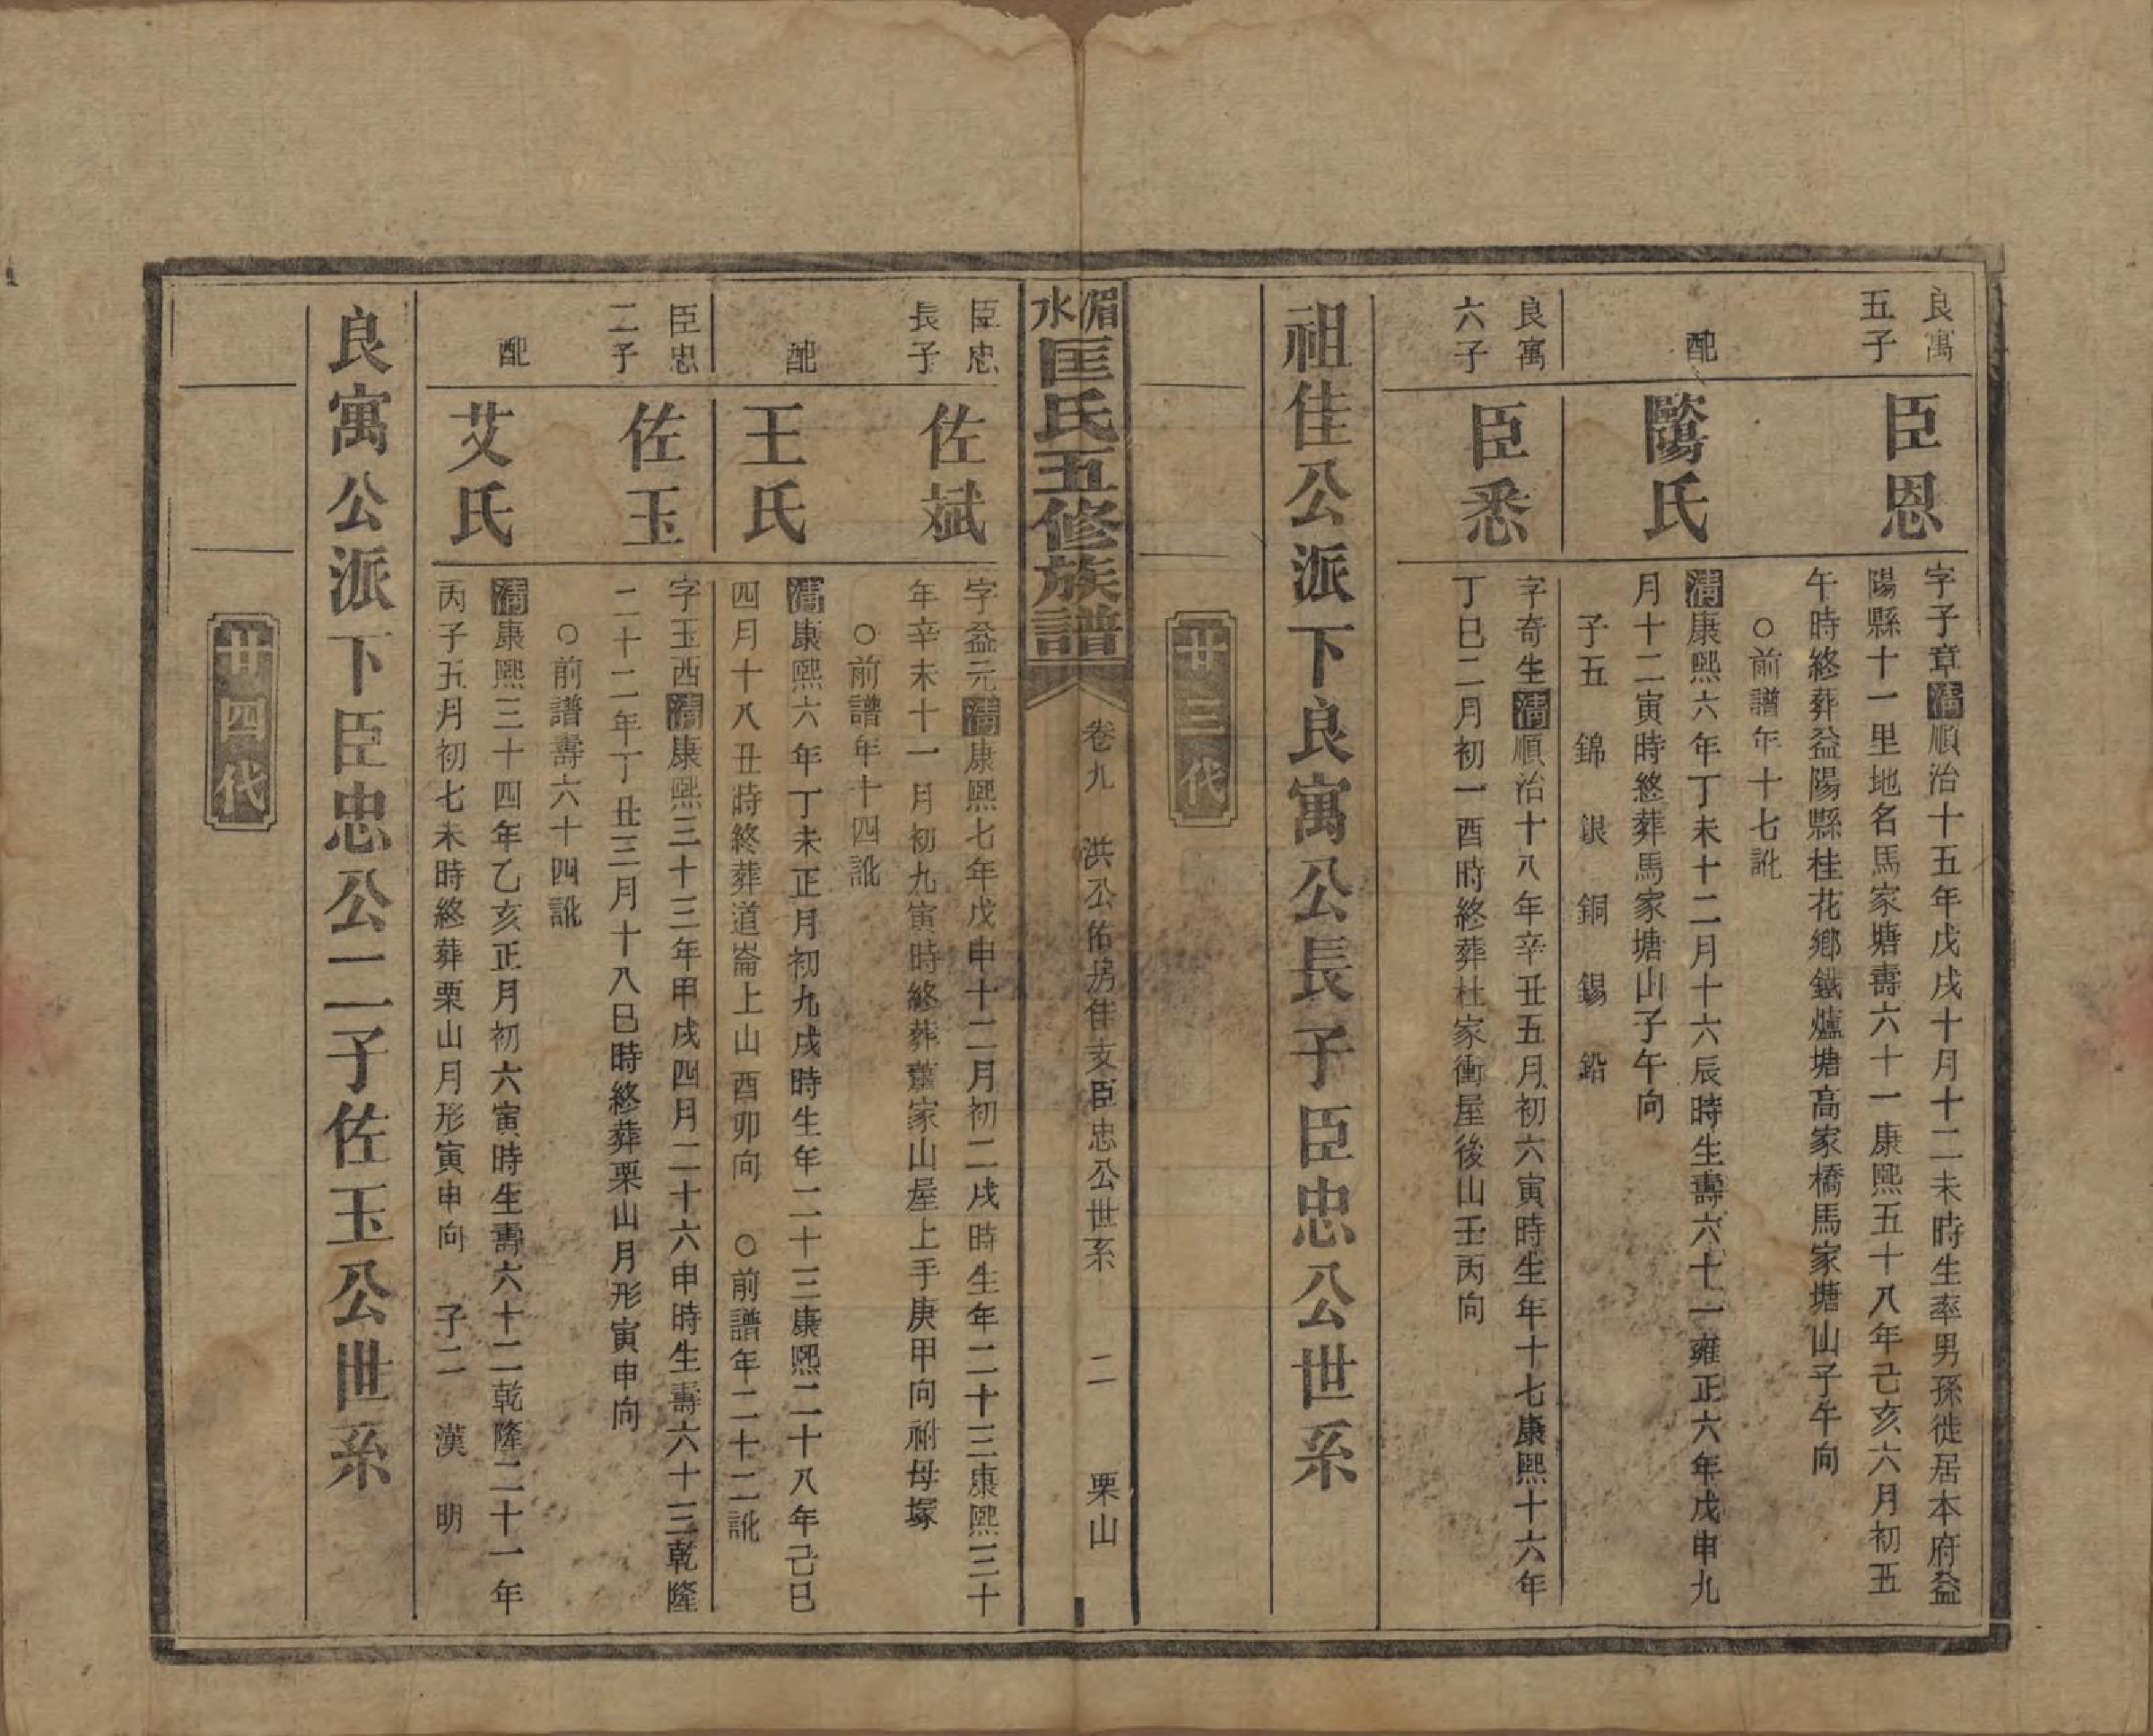 良寓
五子
臣恩
字子章清順治十五年戊戌十月十二未時生率男孫徙居本府益
陽縣十一里地名馬家塘壽六十一康熙五十八年己亥六月初五
午時終葬益陽縣桂花鄉鐵爐塘高家橋馬家塘山子午向
○前譜年十七訛
配
陽氏
清康熙六年丁未十二月十六辰時生壽六十一雍正六年戊申九
月十二寅時終葬馬家塘山子午向
子五 錦 銀 銅 錫 鉛
良寓
六子
臣悉
字奇生清順治十八年辛丑五月初六寅時生年十七康熙十六年
丁巳二月初一酉時終葬杜家衝屋後山壬丙向
祖佳公派下良寓公長子臣忠公世系
廿三代
湄水匡氏五修族譜
卷九 洪公佑房佳支臣忠公世系 二 栗山
臣忠
長子
佐斌
字益元清康熙七年戊申十二月初二戌時生年二十三康熙三十
年辛未十一月初九寅時終葬蕭家山屋上手庚甲向祔母塚
○前譜年十四訛
配
王氏
清康熙六年丁未正月初九戌時生年二十三康熙二十八年己巳
四月十八丑時終葬道崙上山酉卯向 ○前譜年二十二訛
臣忠
二子
佐玉
字玉西清康熙三十三年甲戌四月二十六申時生壽六十三乾隆
二十二年丁丑三月十八巳時終葬栗山月形寅申向
○前譜壽六十四訛
配
艾氏
清康熙三十四年乙亥正月初六寅時生壽六十二乾隆二十一年
丙子五月初七未時終葬栗山月形寅申向 子二 漢 明
良寓公派下臣忠公二子佐玉公世系
廿四代